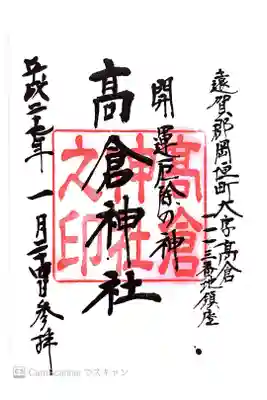 遠賀郡岡垣町大字高倉
一一一三番地鎮座
開運厄除の神
髙倉神社
平成二十七年 一月二十四日参拝
髙倉
神社
之印
CamScanner でスキャン